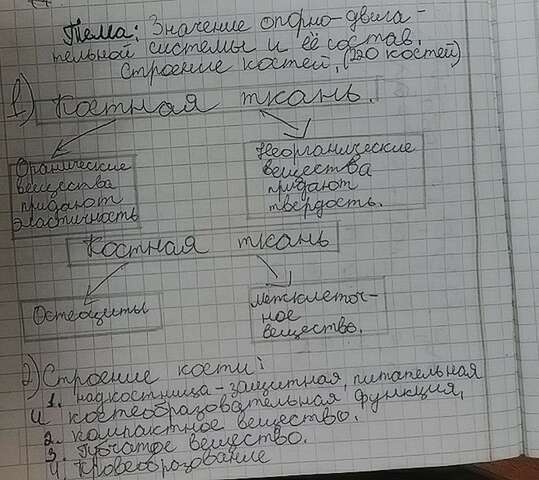 Тема: Значение опорно-двига-
тельной системы и её состав.
Строение костей. (220 костей)
1) Костная ткань.
Органические
вещества
придают
эластичность
Неорганические
вещества
придают
твёрдость.
Костная ткань
Остеоциты
межклеточ-
ное
вещество.
2) Строение кости:
1. надкостница - защитная, питательная
и костеобразовательная функция,
2. компактное вещество.
3. Губчатое вещество.
4. Кровеобразование